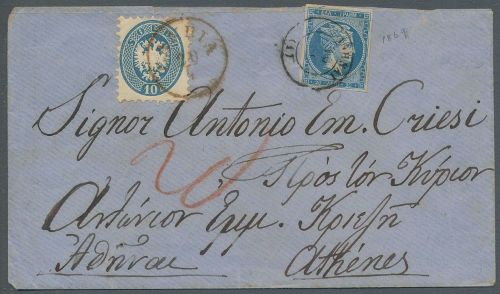 10
1864
Signor Antonio Em. Criesi
20
Πρὸς τὸν Κύριον
Αντώνιον Εμμ. Κριεζῆ
Ἀθῆναι Athènes